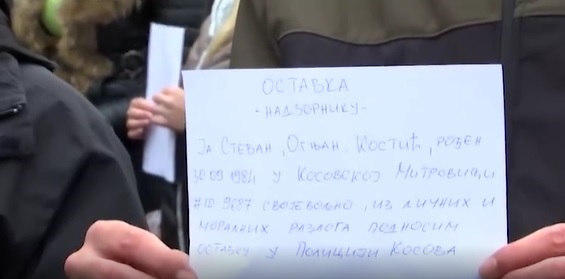 ОСТАВКА
-НАДЗОРНИКУ-
ЈА СТЕВАН, ОГЊАН КОСТИЋ, РОЂЕН
30 09 1984 У КОСОВСКОЈ МИТРОВИЦИ
#ID 9687 СВОЈЕВОЉНО, ИЗ ЛИЧНИХ И
МОРАЛНИХ РАЗЛОГА ПОДНОСИМ
ОСТАВКУ У ПОЛИЦИЈИ КОСОВА